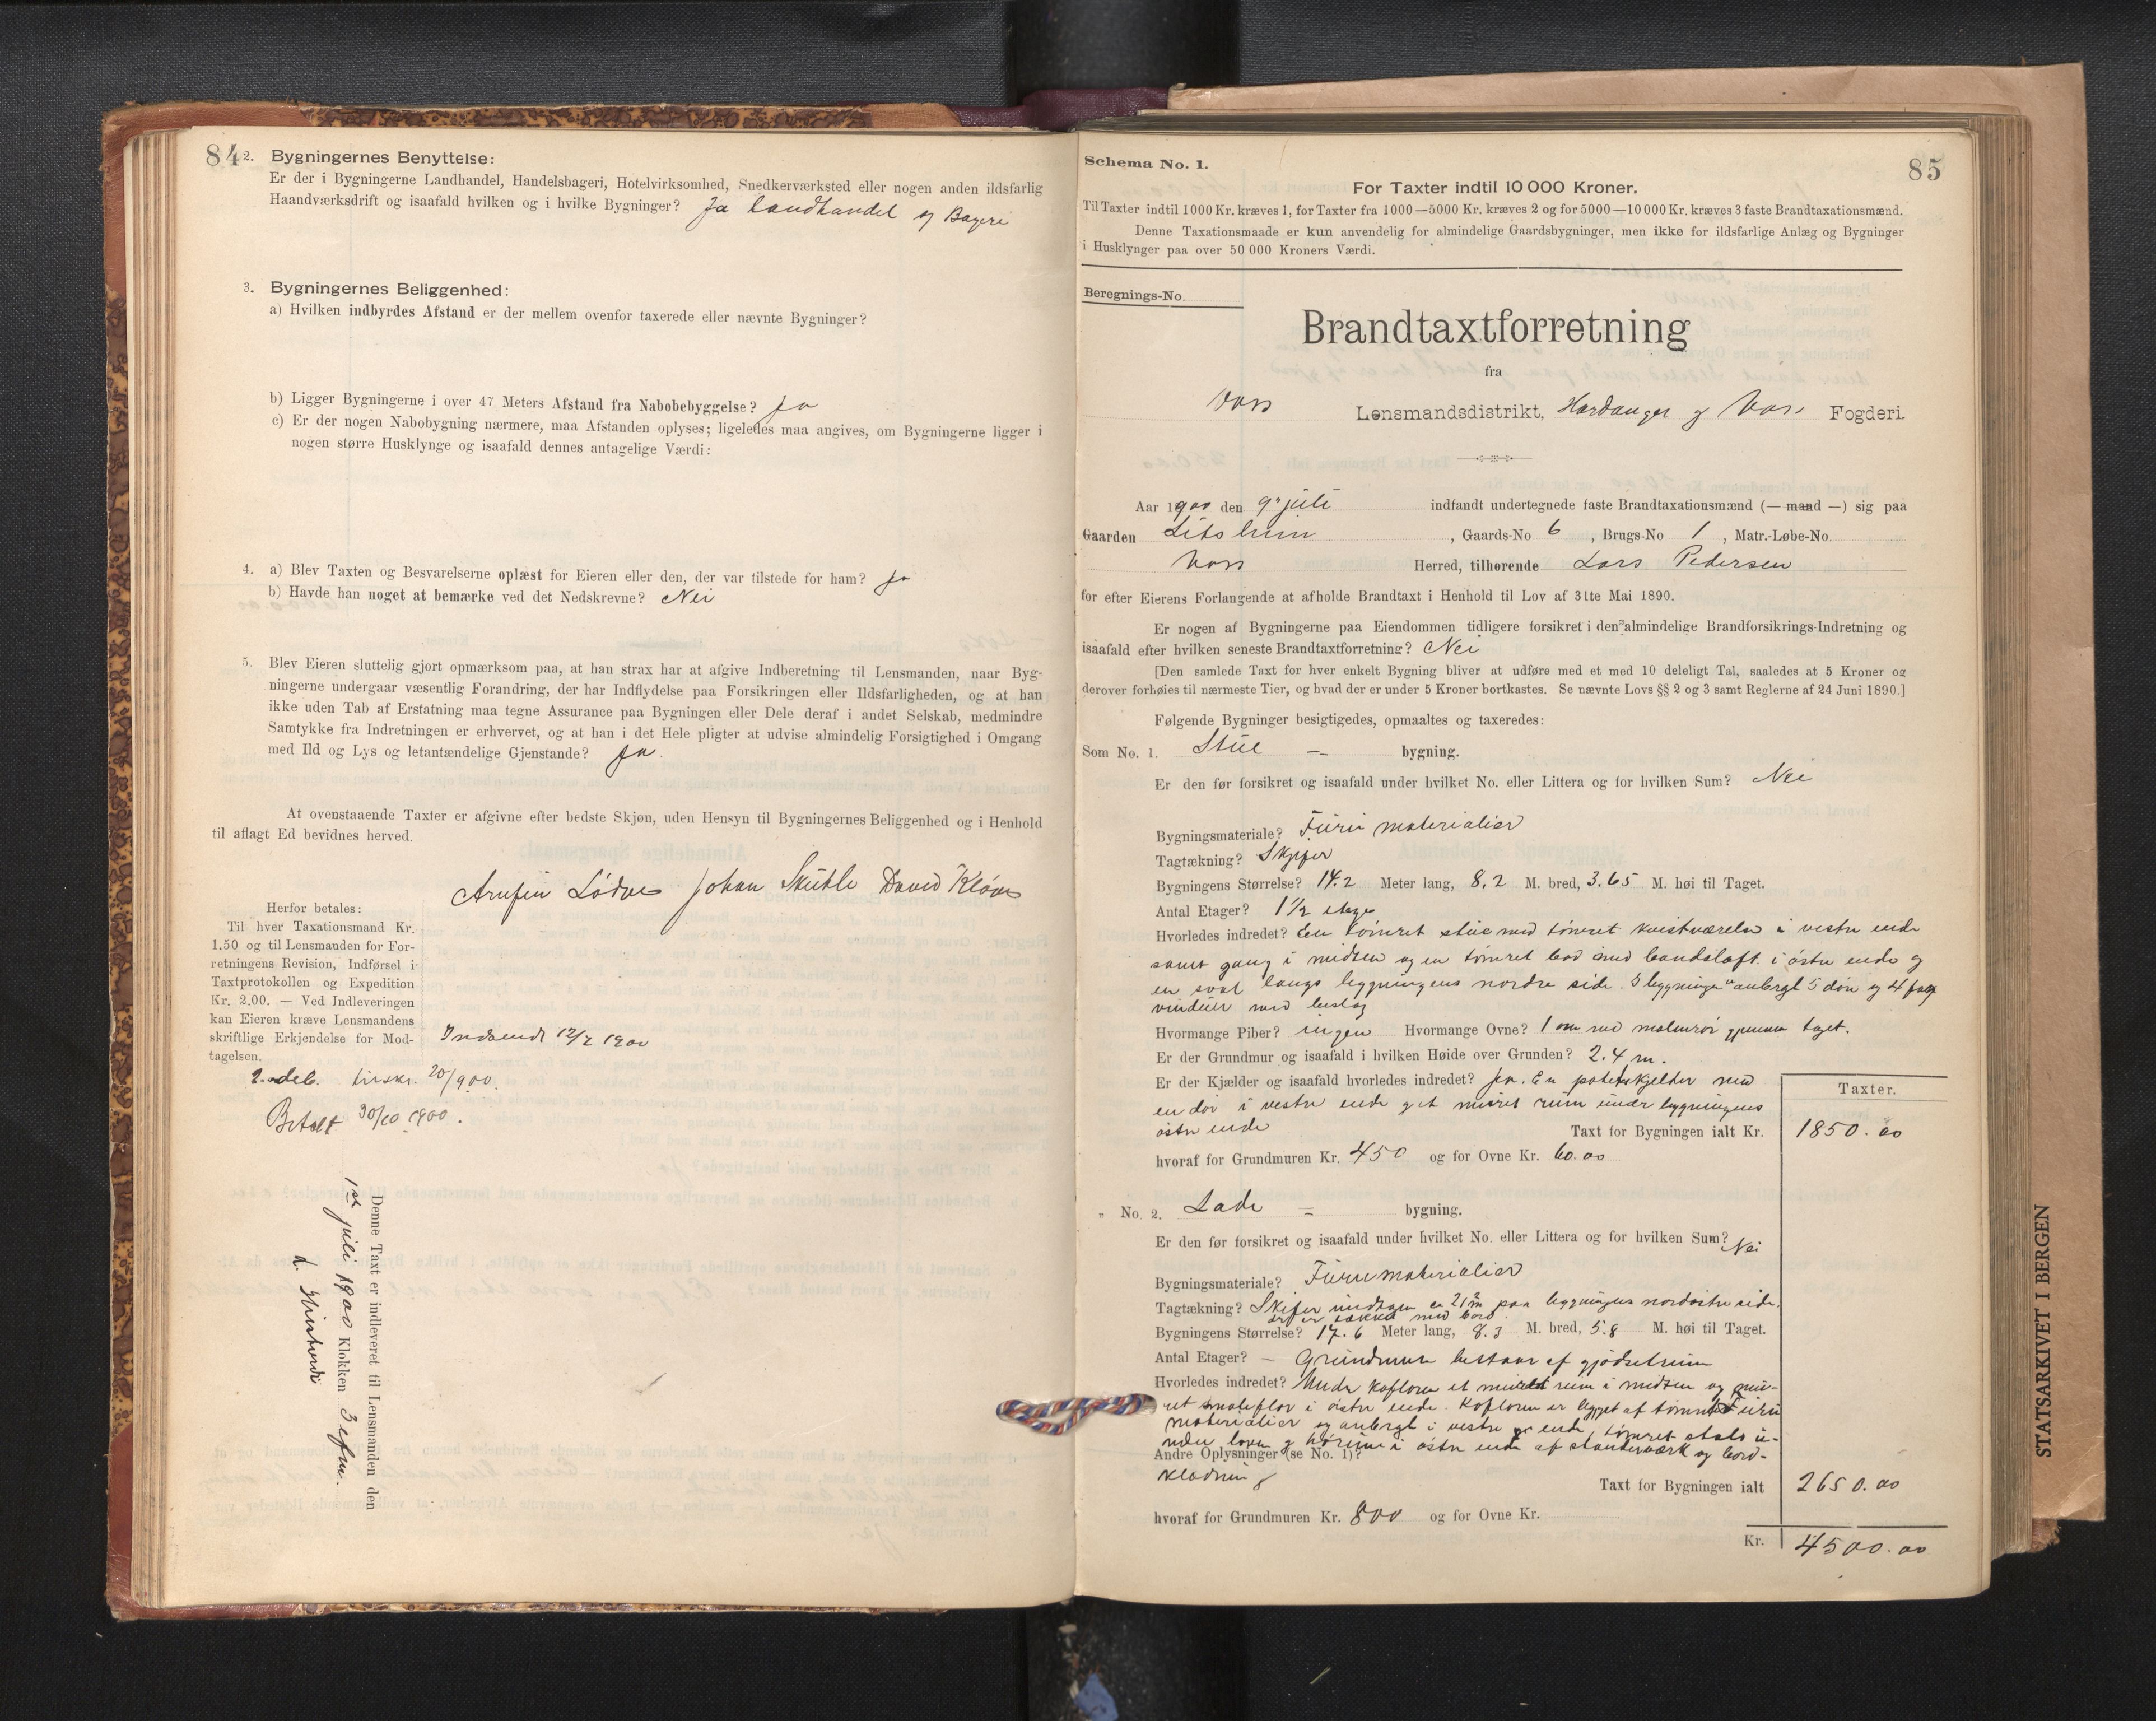 84
2. Bygningernes Benyttelse:
Er der i Bygningerne Landhandel, Handelsbageri, Hotelvirksomhed, Snedkerværksted eller nogen anden ildsfarlig
Haandværksdrift og isaafald hvilken og i hvilke Bygninger? Ja Landhandel og Bageri
3. Bygningernes Beliggenhed:
a) Hvilken indbyrdes Afstand er der mellem ovenfor taxerede eller nævnte Bygninger?
b) Ligger Bygningerne i over 47 Meters Afstand fra Nabobebyggelse? Ja
c) Er der nogen Nabobygning nærmere, maa Afstanden oplyses; ligeledes maa angives, om Bygningerne ligger i
nogen større Husklynge og isaafald dennes antagelige Værdi:
4. a) Blev Taxten og Besvarelserne oplæst for Eieren eller den, der var tilstede for ham? Ja
b) Havde han noget at bemærke ved det Nedskrevne? Nei
5. Blev Eieren sluttelig gjort opmærksom paa, at han strax har at afgive Indberetning til Lensmanden, naar Byg-
ningerne undergaar væsentlig Forandring, der har Indflydelse paa Forsikringen eller Ildsfarligheden, og at han
ikke uden Tab af Erstatning maa tegne Assurance paa Bygningen eller Dele deraf i andet Selskab, medmindre
Samtykke fra Indretningen er erhvervet, og at han i det Hele pligter at udvise almindelig Forsigtighed i Omgang
med Ild og Lys og letantændelige Gjenstande? Ja.
At ovenstaaende Taxter er afgivne efter bedste Skjøn, uden Hensyn til Bygningernes Beliggenhed og i Henhold
til aflagt Ed bevidnes herved.
Johan Skutle David Kløve
Herfor betales:
Til hver Taxationsmand Kr.
1,50 og til Lensmanden for For-
retningens Revision, Indførsel i
Taxtprotokollen og Expedition
Kr. 2.00. — Ved Indleveringen
kan Eieren kræve Lensmandens
skriftlige Erkjendelse for Mod-
tagelsen.
Indsendt 12/7 1900
20/9 00.
Betalt 30/10 1900.
Denne Taxt er indleveret til Lensmanden den
1ste juli 1900 Klokken 3 efm.
Schema No. 1.
85
For Taxter indtil 10 000 Kroner.
Til Taxter indtil 1000 Kr. kræves 1, for Taxter fra 1000—5000 Kr. kræves 2 og for 5000—10 000 Kr. kræves 3 faste Brandtaxationsmænd.
Denne Taxationsmaade er kun anvendelig for almindelige Gaardsbygninger, men ikke for ildsfarlige Anlæg og Bygninger
i Husklynger paa over 50 000 Kroners Værdi.
Beregnings-No.
Brandtaxtforretning
fra
Voss Lensmandsdistrikt, Hardanger og Voss Fogderi.
Aar 1900 den 9de juli indfandt undertegnede faste Brandtaxationsmænd (— mand —) sig paa
Gaarden Litsheim, Gaards-No 6, Brugs-No 1, Matr.-Løbe-No.
Voss Herred, tilhørende Lars Pedersen
for efter Eierens Forlangende at afholde Brandtaxt i Henhold til Lov af 31te Mai 1890.
Er nogen af Bygningerne paa Eiendommen tidligere forsikret i den almindelige Brandforsikrings-Indretning og
isaafald efter hvilken seneste Brandtaxtforretning? Nei
[Den samlede Taxt for hver enkelt Bygning bliver at udføre med et med 10 deleligt Tal, saaledes at 5 Kroner og
derover forhøies til nærmeste Tier, og hvad der er under 5 Kroner bortkastes. Se nævnte Lovs §§ 2 og 3 samt Reglerne af 24 Juni 1890.]
Følgende Bygninger besigtigedes, opmaaltes og taxeredes:
Som No. 1. Stue — bygning.
Er den før forsikret og isaafald under hvilket No. eller Littera og for hvilken Sum? Nei
Bygningsmateriale? Furu materialier
Tagtækning? Skjifer
Bygningens Størrelse? 14.2 Meter lang, 8.2 M. bred, 3.65 M. høi til Taget.
Antal Etager? 1 1/2 etage
Hvorledes indredet? En tømret stue med tømret kvistværelse i vestre ende
samt gang i midten og en tømret bod med bondsloft i østre ende og
en sval langs bygningens nordre side. I bygningen anbragt 5 døre og 4 fag
vinduer med beslag
Hvormange Piber? ingen Hvormange Ovne? 1 ovn med malmrør gjennem taget.
Er der Grundmur og isaafald i hvilken Høide over Grunden? 2.4 m.
Er der Kjælder og isaafald hvorledes indredet? Ja. En potetkjelder med
en dør i vestre ende og et muret rum under bygningens
østre ende
Taxter.
Taxt for Bygningen ialt Kr. 1850.00
hvoraf for Grundmuren Kr. 450 og for Ovne Kr. 60.00
„ No. 2. Lade — bygning.
Er den før forsikret og isaafald under hvilket No. eller Littera og for hvilken Sum? Nei
Bygningsmateriale? Furu materialier
Tagtækning? Skifer undtagen ca 21 m2 paa bygningens nordøstre side.
der er tækket med bord
Bygningens Størrelse? 17.6 Meter lang, 8.3 M. bred, 5.8 M. høi til Taget.
Antal Etager? — Grundmuren bestaar af gjødselrum
Hvorledes indredet? Under kofloren et muret rum i midten og mu-
ret smaleflor i østre ende. Kofloren er bygget af tømret Furu
materialier og anbragt i vestre ende, tømret stals u-
nder loven og hørum i østre ende af standerværk og bord-
Andre Oplysninger (se No. 1)?
klædning
Taxt for Bygningen ialt 2650.00
hvoraf for Grundmuren Kr. 800 og for Ovne Kr.
Kr. 4500.00
STATSARKIVET I BERGEN